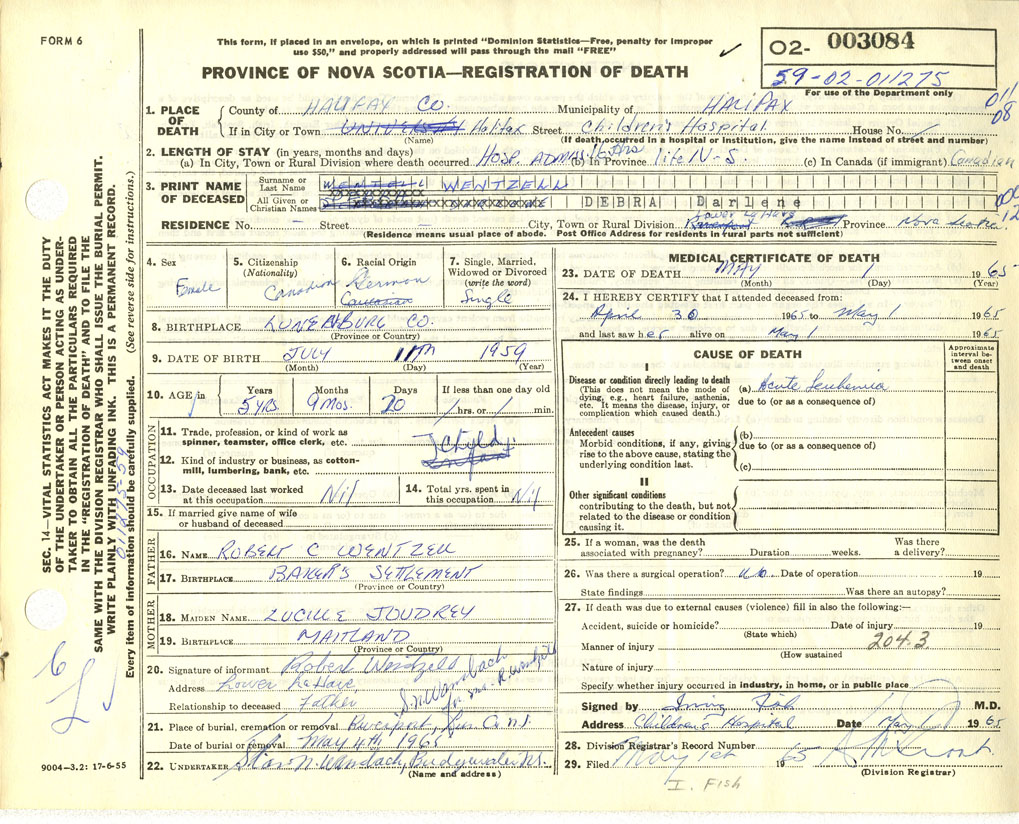 FORM 6
This form, if placed in an envelope, on which is printed "Dominion Statistics—Free, penalty for improper
use $50," and properly addressed will pass through the mail "FREE"
PROVINCE OF NOVA SCOTIA—REGISTRATION OF DEATH
O2- 003084
59-02-011275
For use of the Department only
011
08
1. PLACE OF DEATH
County of HALIFAX CO. Municipality of HALIFAX
If in City or Town Halifax Street Children's Hospital House No.
(Name) (If death occurred in a hospital or institution, give the name instead of street and number)
2. LENGTH OF STAY (in years, months and days)
(a) In City, Town or Rural Division where death occurred Hosp. (b) in Province life N-S. (c) In Canada (if immigrant) Canadian
3. PRINT NAME OF DECEASED
Surname or Last Name WENTZELL
All Given or Christian Names DEBRA Darlene
RESIDENCE No. – Street – City, Town or Rural Division Lower LaHave Province Nova Scotia.
(Residence means usual place of abode. Post Office Address for residents in rural parts not sufficient)
4. Sex
Female
5. Citizenship
(Nationality)
Canadian
6. Racial Origin
German
7. Single, Married, Widowed or Divorced
(write the word)
Single
8. BIRTHPLACE LUNENBURG CO.
(Province or Country)
9. DATE OF BIRTH JULY 11th 1959
(Month) (Day) (Year)
10. AGE
Years Months Days If less than one day old
5 yrs. 9 Mos. 20 / hrs. or / min.
OCCUPATION
11. Trade, profession, or kind of work as
spinner, teamster, office clerk, etc.
Child
12. Kind of industry or business, as cotton-
mill, lumbering, bank, etc.
13. Date deceased last worked
at this occupation Nil
14. Total yrs. spent in
this occupation Nil
15. If married give name of wife
or husband of deceased
FATHER
16. NAME ROBERT C WENTZELL
17. BIRTHPLACE BAKER'S SETTLEMENT
(Province or Country)
MOTHER
18. MAIDEN NAME LUCILLE JOUDREY
19. BIRTHPLACE MAITLAND
(Province or Country)
20. Signature of informant Robert Wentzell
Address Lower LaHave,
Relationship to deceased Father
S.N. Wambach
for Mr. R. Wentzell
21. Place of burial, cremation or removal
Date of burial or removal May 4th 1965
22. UNDERTAKER N. Wambach, Bridgewater N.S.
(Name and address)
9004—3.2: 17-6-55
MEDICAL CERTIFICATE OF DEATH
23. DATE OF DEATH MAY 1 1965
(Month) (Day) (Year)
24. I HEREBY CERTIFY that I attended deceased from:
April 30 1965 to May 1 1965
and last saw her alive on May 1 1965
CAUSE OF DEATH
Approximate interval between onset and death
I
Disease or condition directly leading to death
(This does not mean the mode of
dying, e.g., heart failure, asthenia,
etc. It means the disease, injury, or
complication which caused death.)
(a) Acute Leukemia
due to (or as a consequence of)
Antecedent causes
Morbid conditions, if any, giving
rise to the above cause, stating the
underlying condition last.
(b)
due to (or as a consequence of)
(c)
II
Other significant conditions
contributing to the death, but not
related to the disease or condition
causing it.
25. If a woman, was the death
associated with pregnancy? Duration weeks. Was there a delivery?
26. Was there a surgical operation? No Date of operation 19
State findings Was there an autopsy?
27. If death was due to external causes (violence) fill in also the following:—
Accident, suicide or homicide? Date of injury 19
(State which)
Manner of injury 204.3
(How sustained)
Nature of injury
Specify whether injury occurred in industry, in home, or in public place
Signed by Irving Fish M.D.
Address Children's Hospital Date May 1 1965
28. Division Registrar's Record Number
29. Filed May 1st 1965
(Division Registrar)
I. Fish
SEC. 14—VITAL STATISTICS ACT MAKES IT THE DUTY
OF THE UNDERTAKER OR PERSON ACTING AS UNDER-
TAKER TO OBTAIN ALL THE PARTICULARS REQUIRED
IN THE "REGISTRATION OF DEATH" AND TO FILE THE
SAME WITH THE DIVISION REGISTRAR WHO SHALL ISSUE THE BURIAL PERMIT.
WRITE PLAINLY WITH UNFADING INK. THIS IS A PERMANENT RECORD.
011275-59
Every item of information should be carefully supplied. (See reverse side for instructions.)